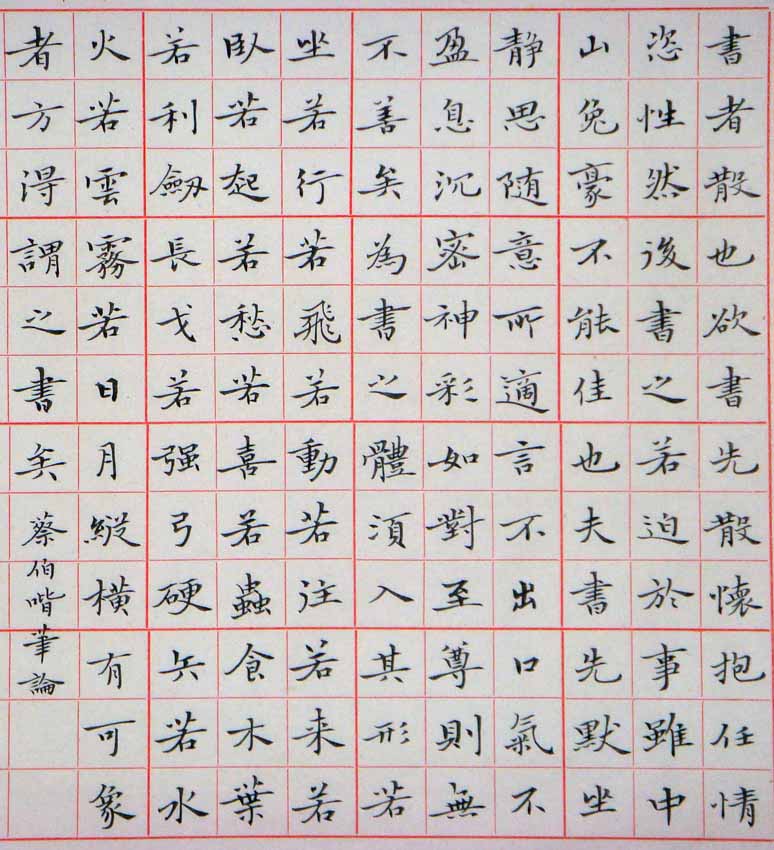 書者散也欲書先散懷抱任情
恣性然後書之若迫於事雖中
山兔豪不能佳也夫書先默坐
静思随意所適言不出口氣不
盈息沉密神彩如對至尊則無
不善矣為書之體須入其形若
坐若行若飛若動若注若来若
臥若起若愁若喜若蟲食木葉
若利劒長戈若强弓硬矢若水
火若雲霧若日月縱橫有可象
者方得謂之書矣蔡伯喈筆論